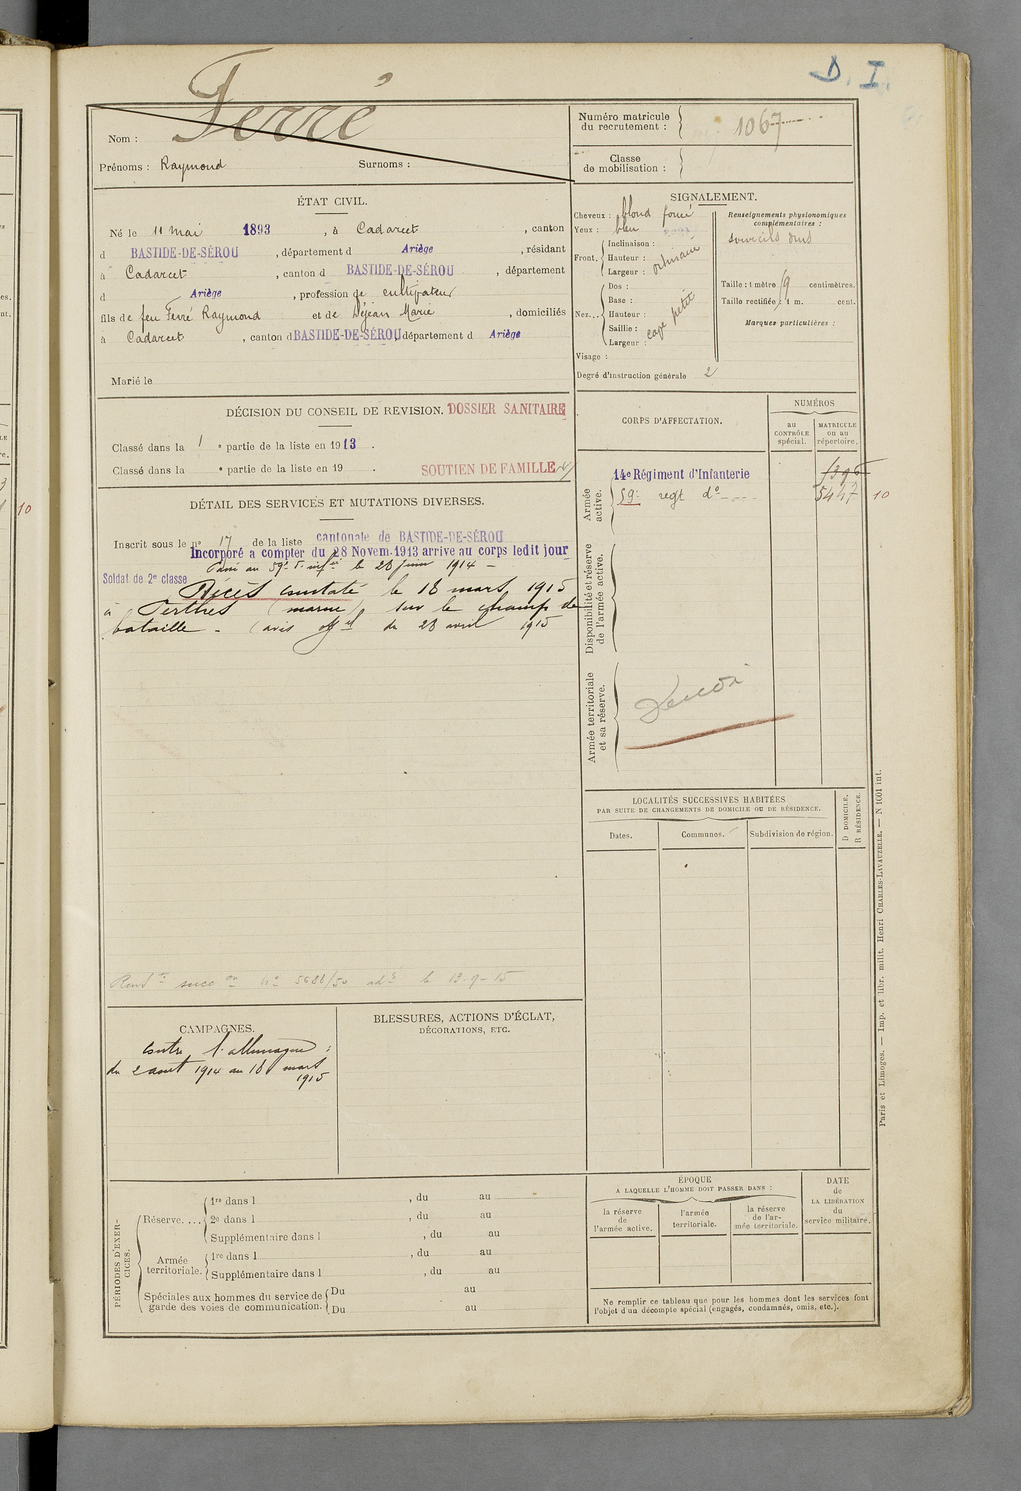 D. I.
Nom : Ferré
Prénoms : Raymond Surnoms :
Numéro matricule du recrutement : 1067
Classe de mobilisation :
ÉTAT CIVIL.
Né le 11 mai 1893, à Cadarcet, canton
d BASTIDE-DE-SÉROU, département d Ariège, résidant
à Cadarcet, canton d BASTIDE-DE-SÉROU, département
d Ariège, profession de cultivateur
fils de feu Ferré Raymond et de Déjean Marie, domiciliés
à Cadarcet, canton d BASTIDE-DE-SÉROU département d Ariège
Marié le
SIGNALEMENT.
Cheveux : blond foncé
Yeux : bleu
Front. Inclinaison :
Hauteur : ordinaire
Largeur :
Nez... Dos :
Base :
Hauteur :
Saillie :
Largeur :
petit
Visage :
Degré d'instruction générale 2
Renseignements physionomiques complémentaires :
sourcils
Taille : 1 mètre centimètres.
Taille rectifiée : 1 m. cent.
Marques particulières :
DÉCISION DU CONSEIL DE REVISION. DOSSIER SANITAIRE
Classé dans la 1 e partie de la liste en 1913.
Classé dans la e partie de la liste en 19 .
SOUTIEN DE FAMILLE
DÉTAIL DES SERVICES ET MUTATIONS DIVERSES.
Inscrit sous le no 17 de la liste cantonale de BASTIDE-DE-SÉROU
Incorporé a compter du 28 Novem. 1913 arrive au corps ledit jour
Soldat de 2e classe
Passé au 59e r. infrie le 28 juin 1914 -
Décès constaté le 18 mars 1915
à Perthes (marne) sur le champ de
bataille - (avis off el du 28 avril 1915
Rend succ on no 5688/50 le 13-9-15
CORPS D'AFFECTATION.
NUMÉROS
au CONTRÔLE spécial.
MATRICULE ou au répertoire.
Armée active.
14e Régiment d'Infanterie
59e regt do 5447 10
Disponibilité et réserve de l'armée active.
Armée territoriale et sa réserve.
LOCALITÉS SUCCESSIVES HABITÉES
PAR SUITE DE CHANGEMENTS DE DOMICILE OU DE RÉSIDENCE.
Dates. Communes. Subdivision de région.
D DOMICILE.
R RÉSIDENCE.
CAMPAGNES.
contre l'allemagne :
du 2 aout 1914 au 18 mars
1915
BLESSURES, ACTIONS D'ÉCLAT,
DÉCORATIONS, ETC.
PÉRIODES D'EXERCICES.
Réserve. ...
1re dans l , du au
2e dans l , du au
Supplémentaire dans l , du au
Armée territoriale.
1re dans l , du au
Supplémentaire dans l , du au
Spéciales aux hommes du service de garde des voies de communication.
Du au
Du au
ÉPOQUE
A LAQUELLE L'HOMME DOIT PASSER DANS :
la réserve de l'armée active.
l'armée territoriale.
la réserve de l'armée territoriale.
DATE
de
LA LIBÉRATION
du
service militaire.
Ne remplir ce tableau que pour les hommes dont les services font
l'objet d'un décompte spécial (engagés, condamnés, omis, etc.).
Paris et Limoges. — Imp. et libr. milit. Henri CHARLES-LAVAUZELLE. — N 1001 int.